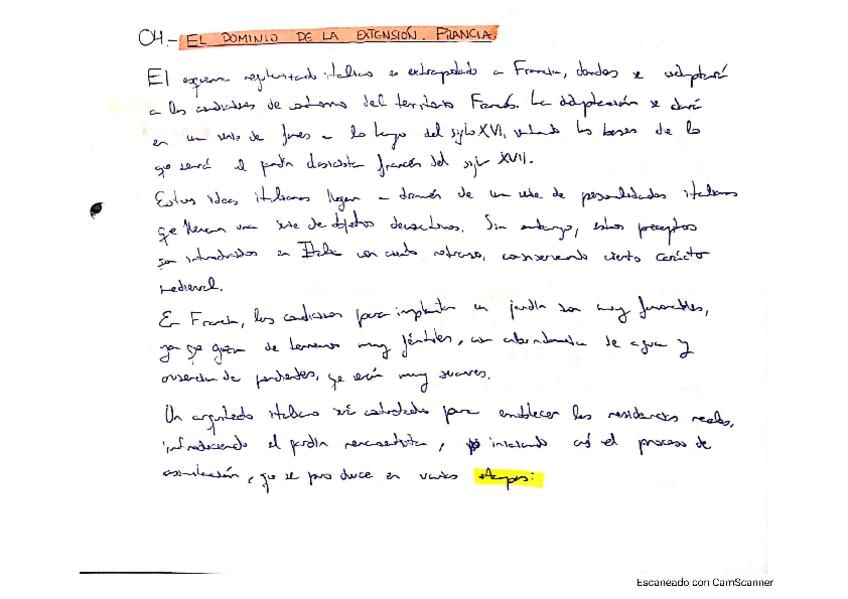 04.- EL DOMINIO DE LA EXTENSIÓN. FRANCIA.
El esquema italiano es extrapolado a Francia, donde se
a las condiciones de entorno del territorio Francés. La adaptación se dará
en un serie de fases a lo largo del siglo XVI, las bases de lo
que será el jardín clasicista francés del siglo XVII.
Estas ideas italianas llegan a través de un serie de personalidades italianas
que llevan una serie de objetos decorativos. Sin embargo, estos preceptos
son introducidos en con cierto retraso, conservando cierto carácter
medieval.
En Francia, las condiciones para implantar un jardín son muy favorables,
ya que goza de terrenos muy fértiles, con abundancia de agua y
ausencia de pendientes, que serán muy suaves.
Un arquitecto italiano será contratado para establecer las residencias reales,
introduciendo el jardín renacentista, iniciando así el proceso de
asimilación, que se produce en varias etapas:
Escaneado con CamScanner